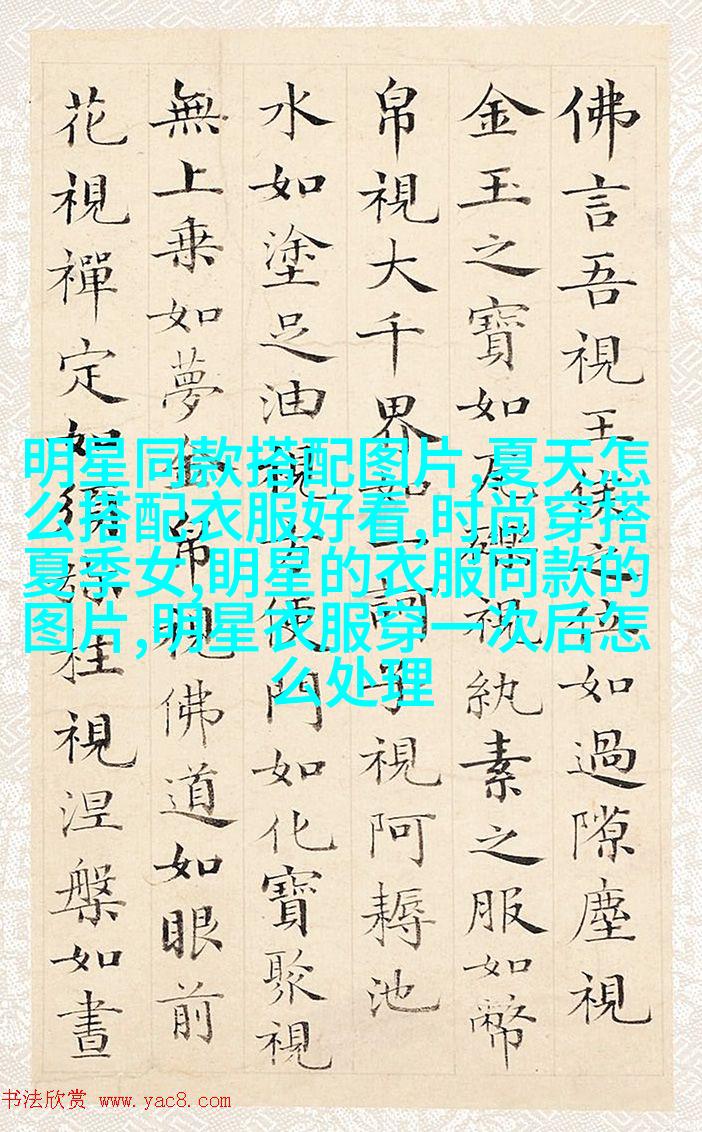 佛言吾視王侯之位如過隙塵視
金玉之寶如瓦礫視紈素之服如幣
帛視大千界如一訶子視阿耨池
水如塗足油視方便門如化寶聚視
無上乘如夢金帛視佛道如眼前
花視禪定如須彌柱視涅槃如晝
明星同款搭配图片,夏天怎
么搭配衣服好看,时尚穿搭
夏季女,眀星的衣服同款的
图片,明星衣服穿一次后怎
么处理
书法欣赏 www.yac8.com